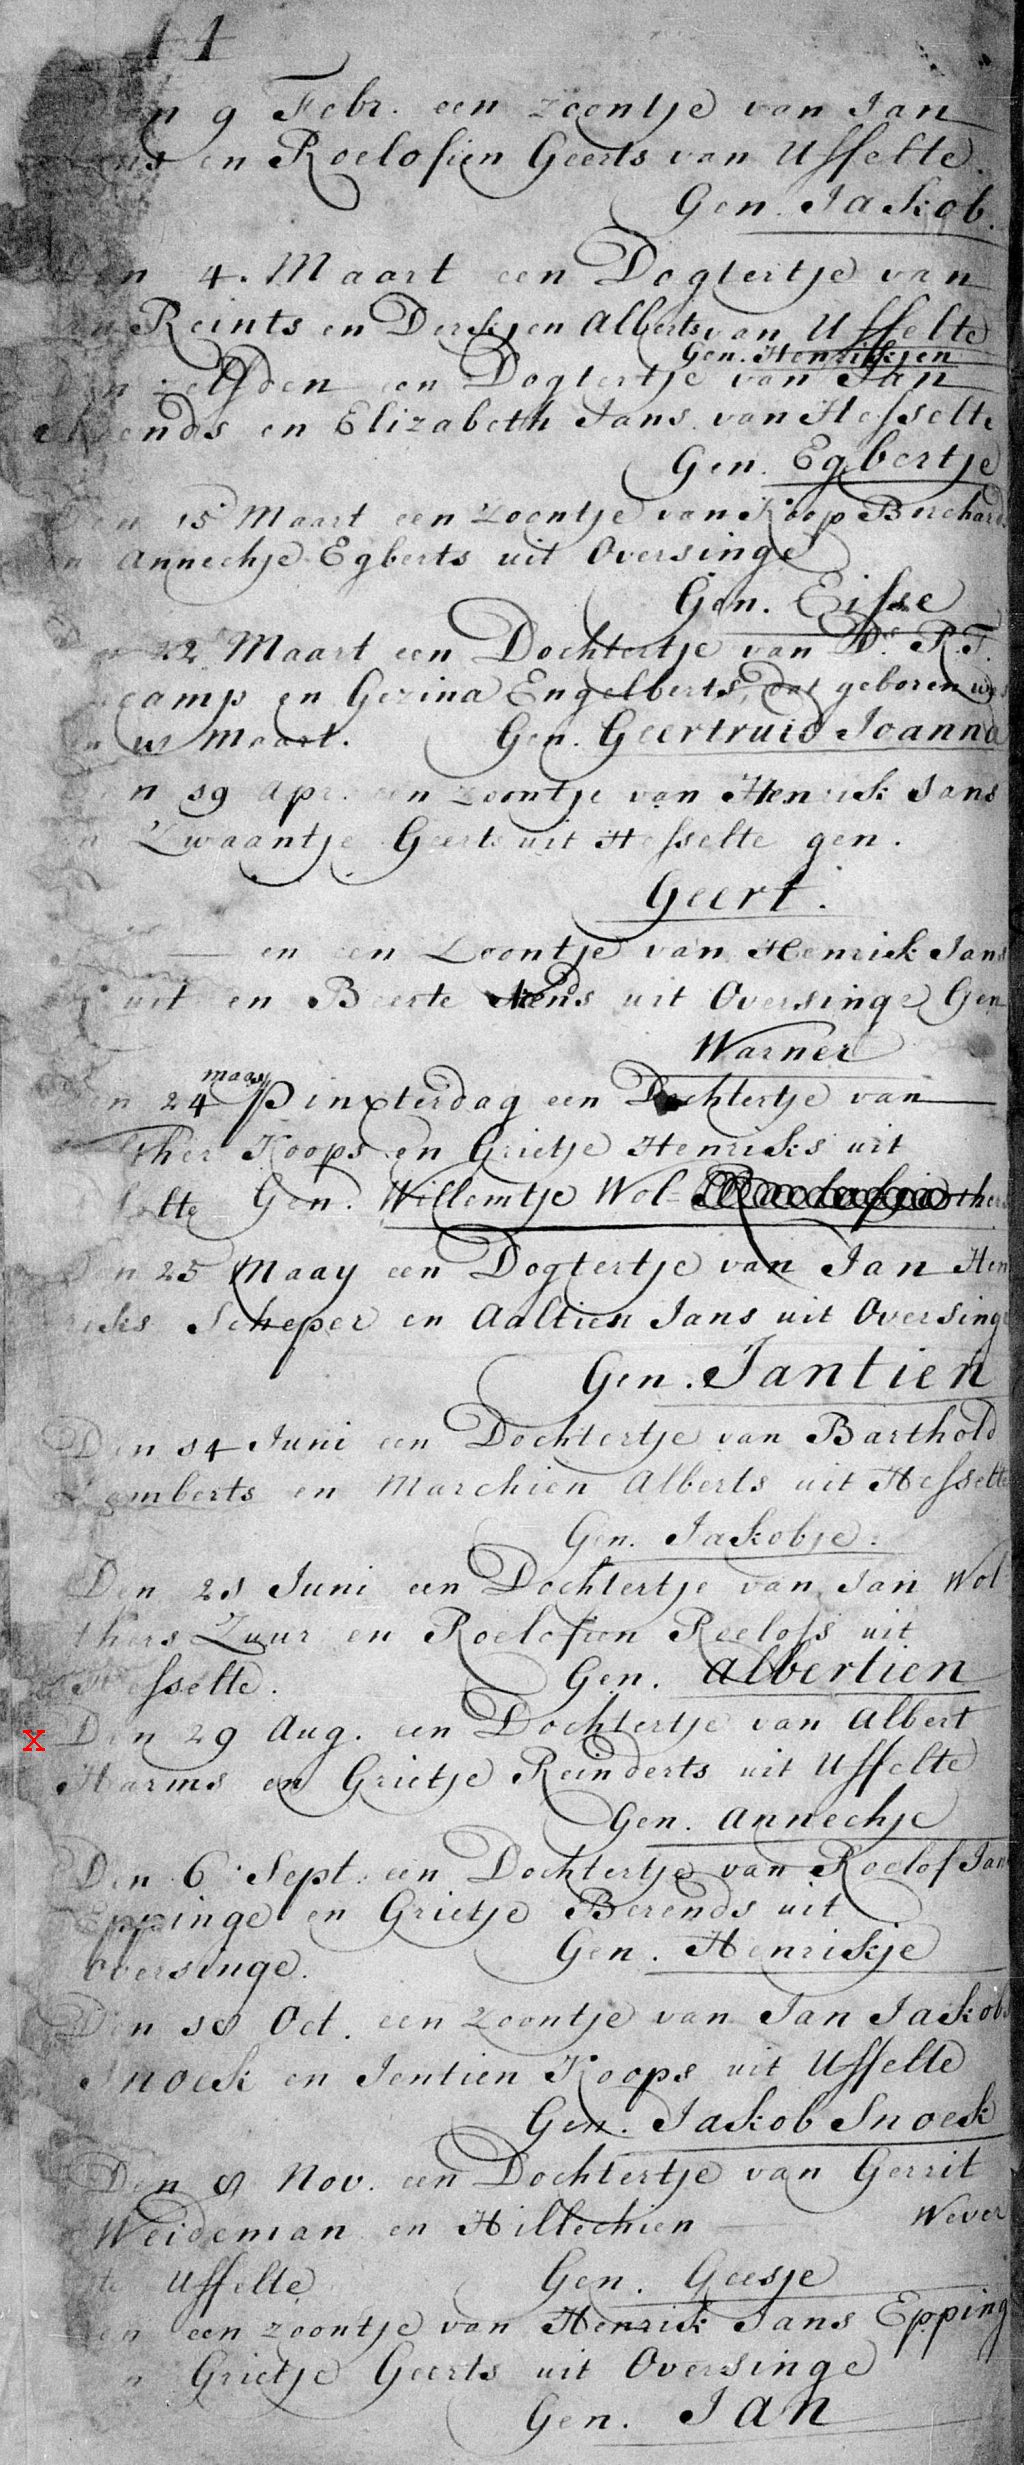 44
9 Febr. een zoontje van Jan
en Roelofien Geerts van Uffelte.
Gen. Jakob.
4. Maart een Dogtertje van
Reints en Derkjen Alberts van Uffelte
Gen. Henrikjen
Den zelfden een Dogtertje van Jan
Arends en Elizabeth Jans. van Hesselte
Gen. Egbertje
Den 15 Maart een zoontje van Koop Borchards
en Annechje Egberts uit Oversinge
Gen. Eisse
22 Maart een Dochtertje van Ds. R.T.
camp en Gezina Engelberts, dat geboren was
Maart. Gen. Geertruid Joanna
19 Apr. een zoontje van Henrik Jans
en Zwaantje Geerts uit Hesselte gen.
Geert.
— en een Zoontje van Henrik Jans
en Beerte uit Oversinge Gen
Warner
maay
24 Pinxterdag een Dochtertje van
ther Koops en Grietje Henriks uit
Gen. Willemtje Wol- thers
Den 25 Maay een Dogtertje van Jan Hen
riks Scheper en Aaltien Jans uit Oversinge
Gen. Jantien
Den 14 Juni een Dochtertje van Barthold
Lamberts en Marchien Alberts uit Hesselte
Gen. Jakobje.
Den 21 Juni een Dochtertje van Jan Wol
thers Zuur en Roelofien Roelofs uit
Hesselte. Gen. Albertien
X Den 29 Aug. een Dochtertje van Albert
Harms en Grietje Reinderts uit Uffelte
Gen. Annechje
Den 6 Sept. een Dochtertje van Roelof Jans
Eppinge en Grietje Berends uit
Oversinge. Gen. Henrikje
Den 18 Oct. een zoontje van Jan Jakobs
Snoek en Jentien Koops uit Uffelte
Gen. Jakob Snoek
Den 8 Nov. een Dochtertje van Gerrit
Weideman en Hillechien — Wever
Uffelte Gen. Geesje
een zoontje van Henrik Jans Epping
Grietje Geerts uit Oversinge
Gen. Jan